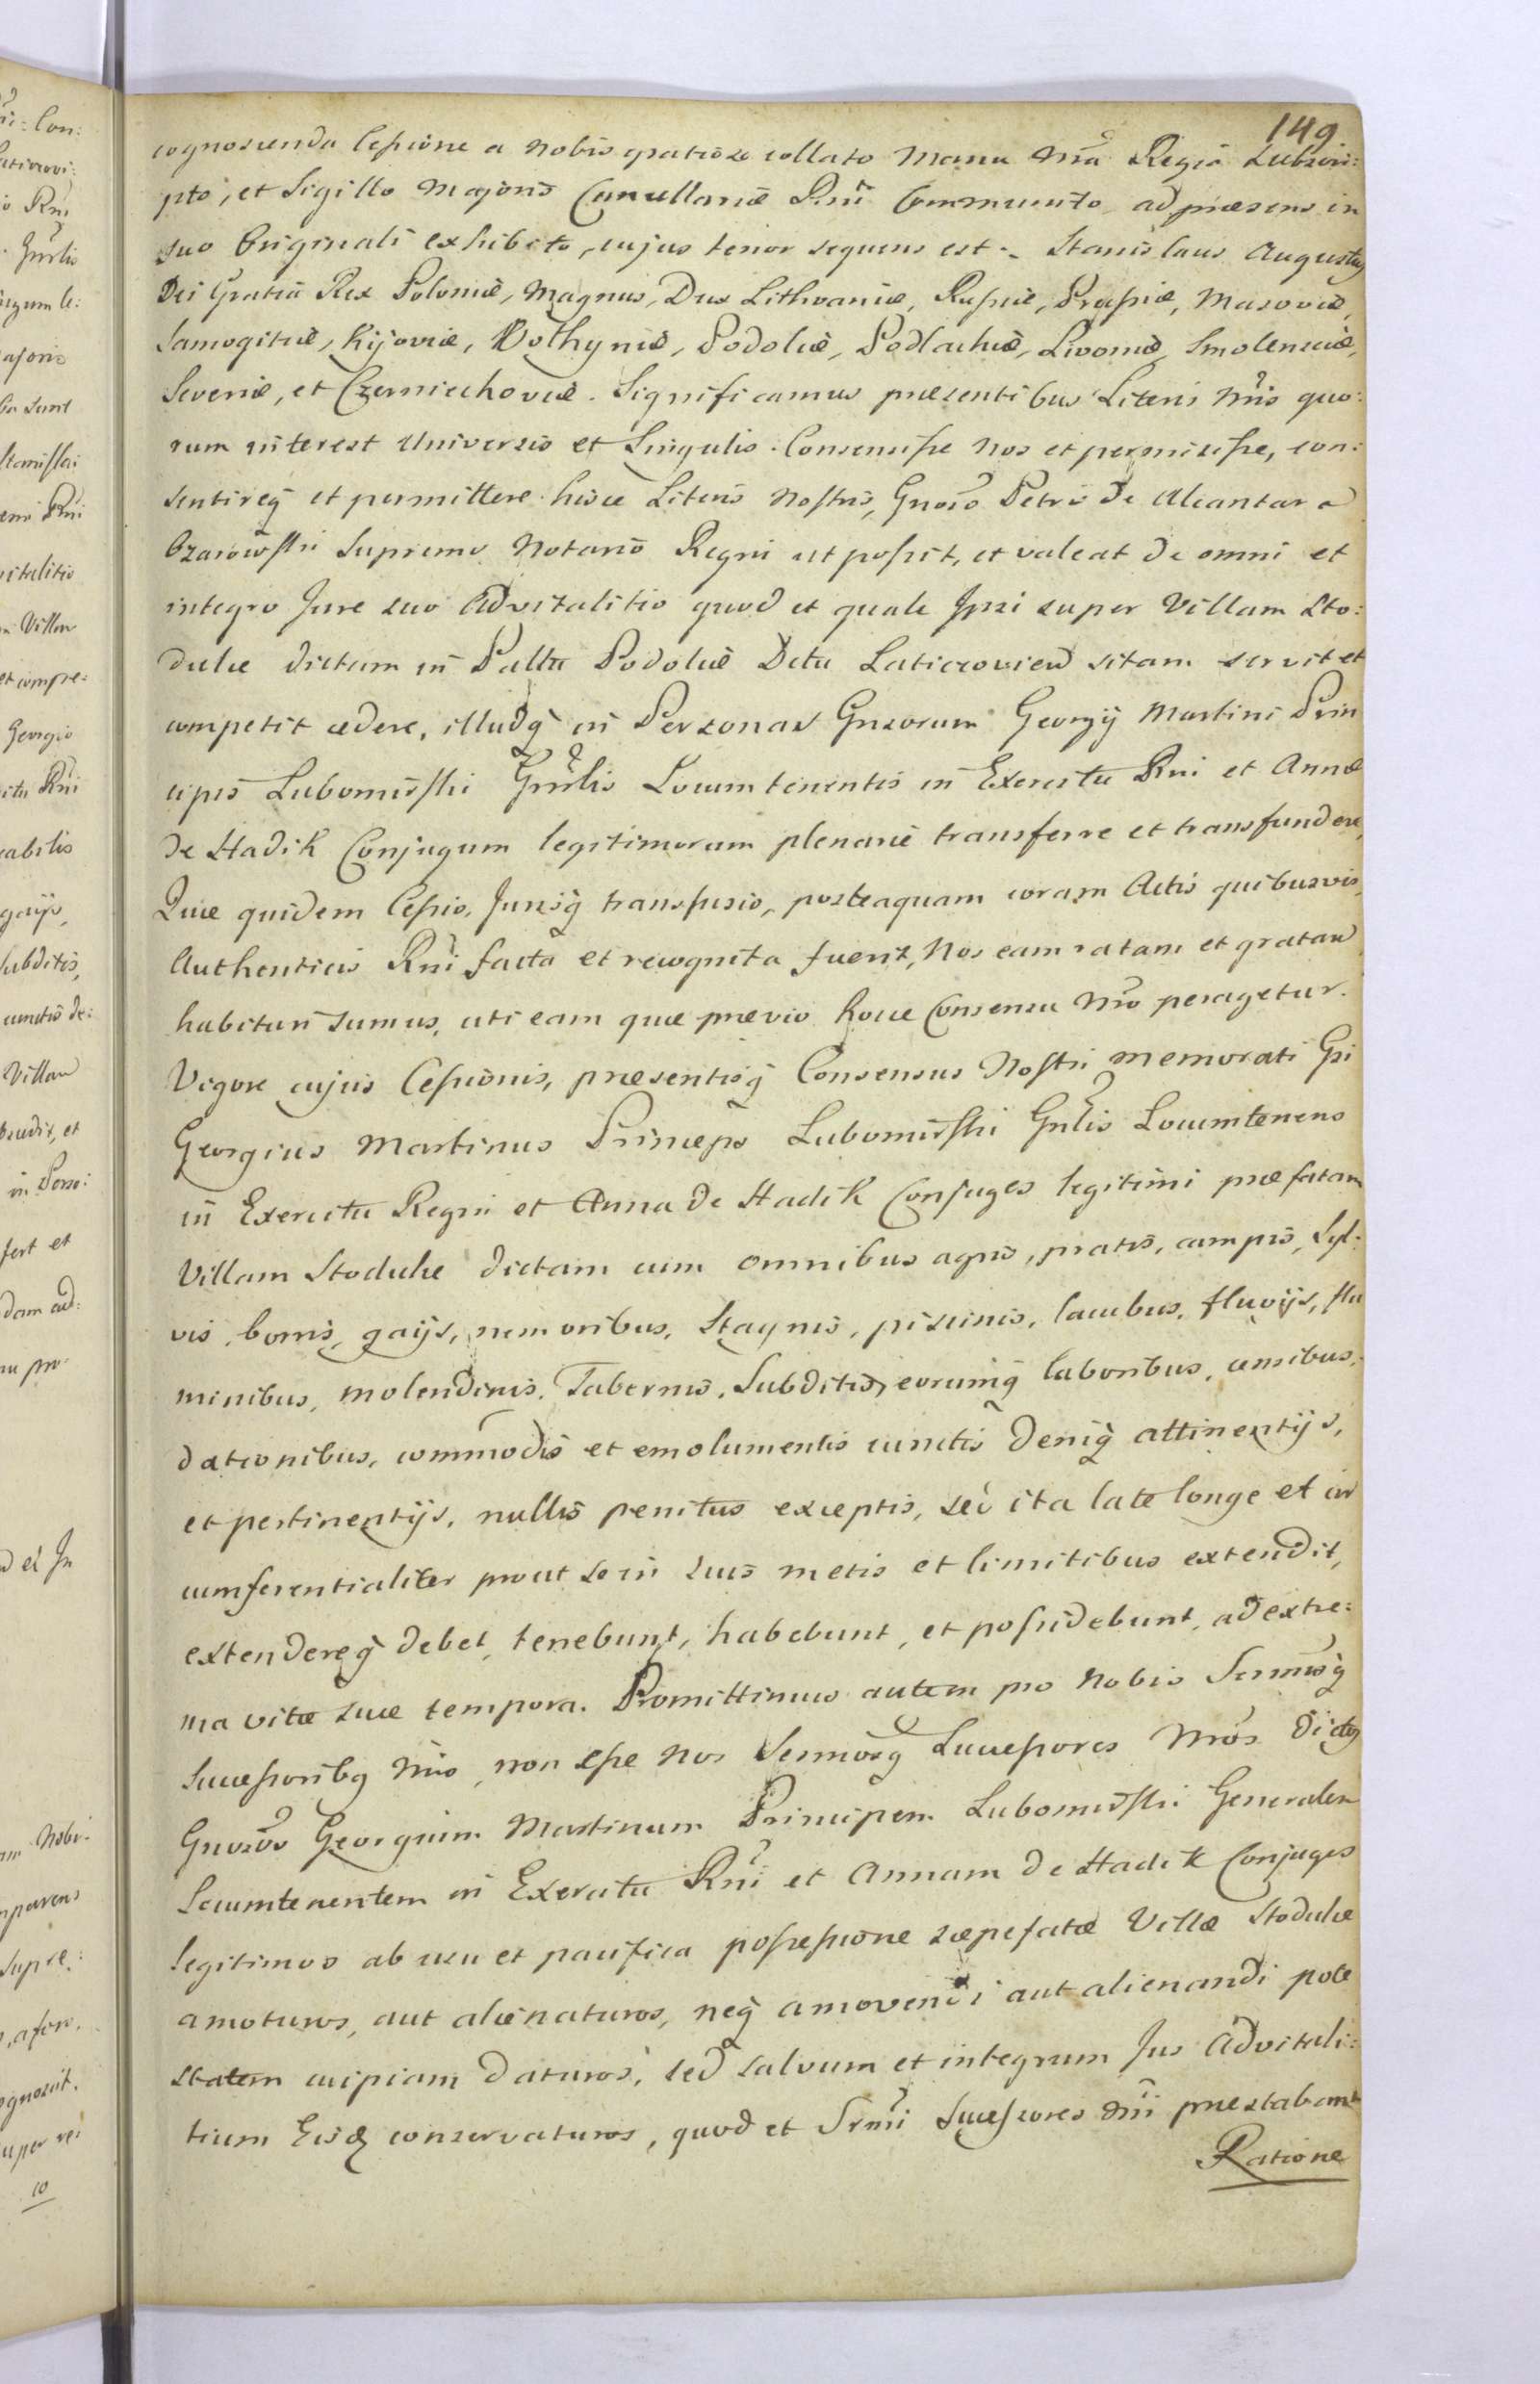 149
cognoscenda Cessione a Nobis gratiose collato Manu Nrã Regiã Subscri:
pto, et Sigillo Majoris Cancellariæ Rni Communito ad præsens in
suo Originali exhibito, cujus tenor sequens est. Stanislaus Augustus
Dei Gratia Rex Poloniæ, Magnus Dux Lithvaniæ, Russiæ, Prussiæ, Masoviæ,
Samogitiæ, Kijoviæ, Volhyniæ, Podoliæ, Podlachiæ, Livoniæ, Smolensciæ,
Severiæ, et Czerniechoviæ. Significamus præsentibus Literis Nris quo:
rum interest Universis et Singulis. Consensisse Nos et permisisse, con:
sentireq et permittere hisce Literis Nostris, Gnoso Petro de Alcantara
Ożarowski Supremo Notario Regni ut possit, et valeat de omni et
integro Jure suo Advitalitio quod et quale Ipsi super Villam Sto:
dulce dictam in Pallu Podoliæ Dttu Laticzovien sitam servit et
competit cedere, illudq in Personas Gnsorum Georgij Martini Prin
cipis Lubomirski Gnrlis Locumtenentis in Exercitu Rni et Annæ
de Hadik Conjugum legitimorum plenarie transferre et transfundere,
Quæ quidem Cessio, Jurisq transfusio, posteaquam coram Actis quibusvis,
Authenticis Rni facta et recognita fuerit, Nos eam ratam et gratam
habituri sumus, uti eam quæ prævio hocce Consensu Nro peragetur.
Vigore cujus Cessionis, præsentisq Consensus Nostri memorati Gsi
Georgius Martinus Princeps Lubomirski Gnlis Locumtenens
in Exercitu Regni et Anna de Hadik Conjuges legitimi præfatam
Villam Stodulce dictam cum omnibus agris, pratis, campis, Syl:
vis, borris, gaijs, nemoribus, Stagnis, piscinis, lacubus, fluvijs, flu
minibus, molendinis, Tabernis, Subditis, eorumq laboribus, censibus,
dationibus, commodis et emolumentis cunctis deniq attinentijs,
et pertinentijs, nullis penitus exceptis, sed ita late longe et cir
cumferentialiter prout se in suis metis et limitibus extendit,
extendereq debet, tenebunt, habebunt, et possidebunt, ad extre:
ma vitæ suæ tempora. Promittimus autem pro Nobis Sernmsq
Successoribq Nris, non esse Nos Sernmosq Successores Nros dictos
Gnosos Georgium Martinum Principem Lubomirski Generalem
Locumtenentem in Exercitu Rni et Annam de Hadik Conjuges
legitimos ab usu et pacifica possessione sæpefatæ Villæ Stodulce
amoturos, aut alienaturos, neq amovendi aut alienandi pote
statem cuipiam daturos, sed salvum et integrum Jus Advitali:
tium Eisd conservaturos, quod et Srmi Successores Nri præstabunt
Ratione